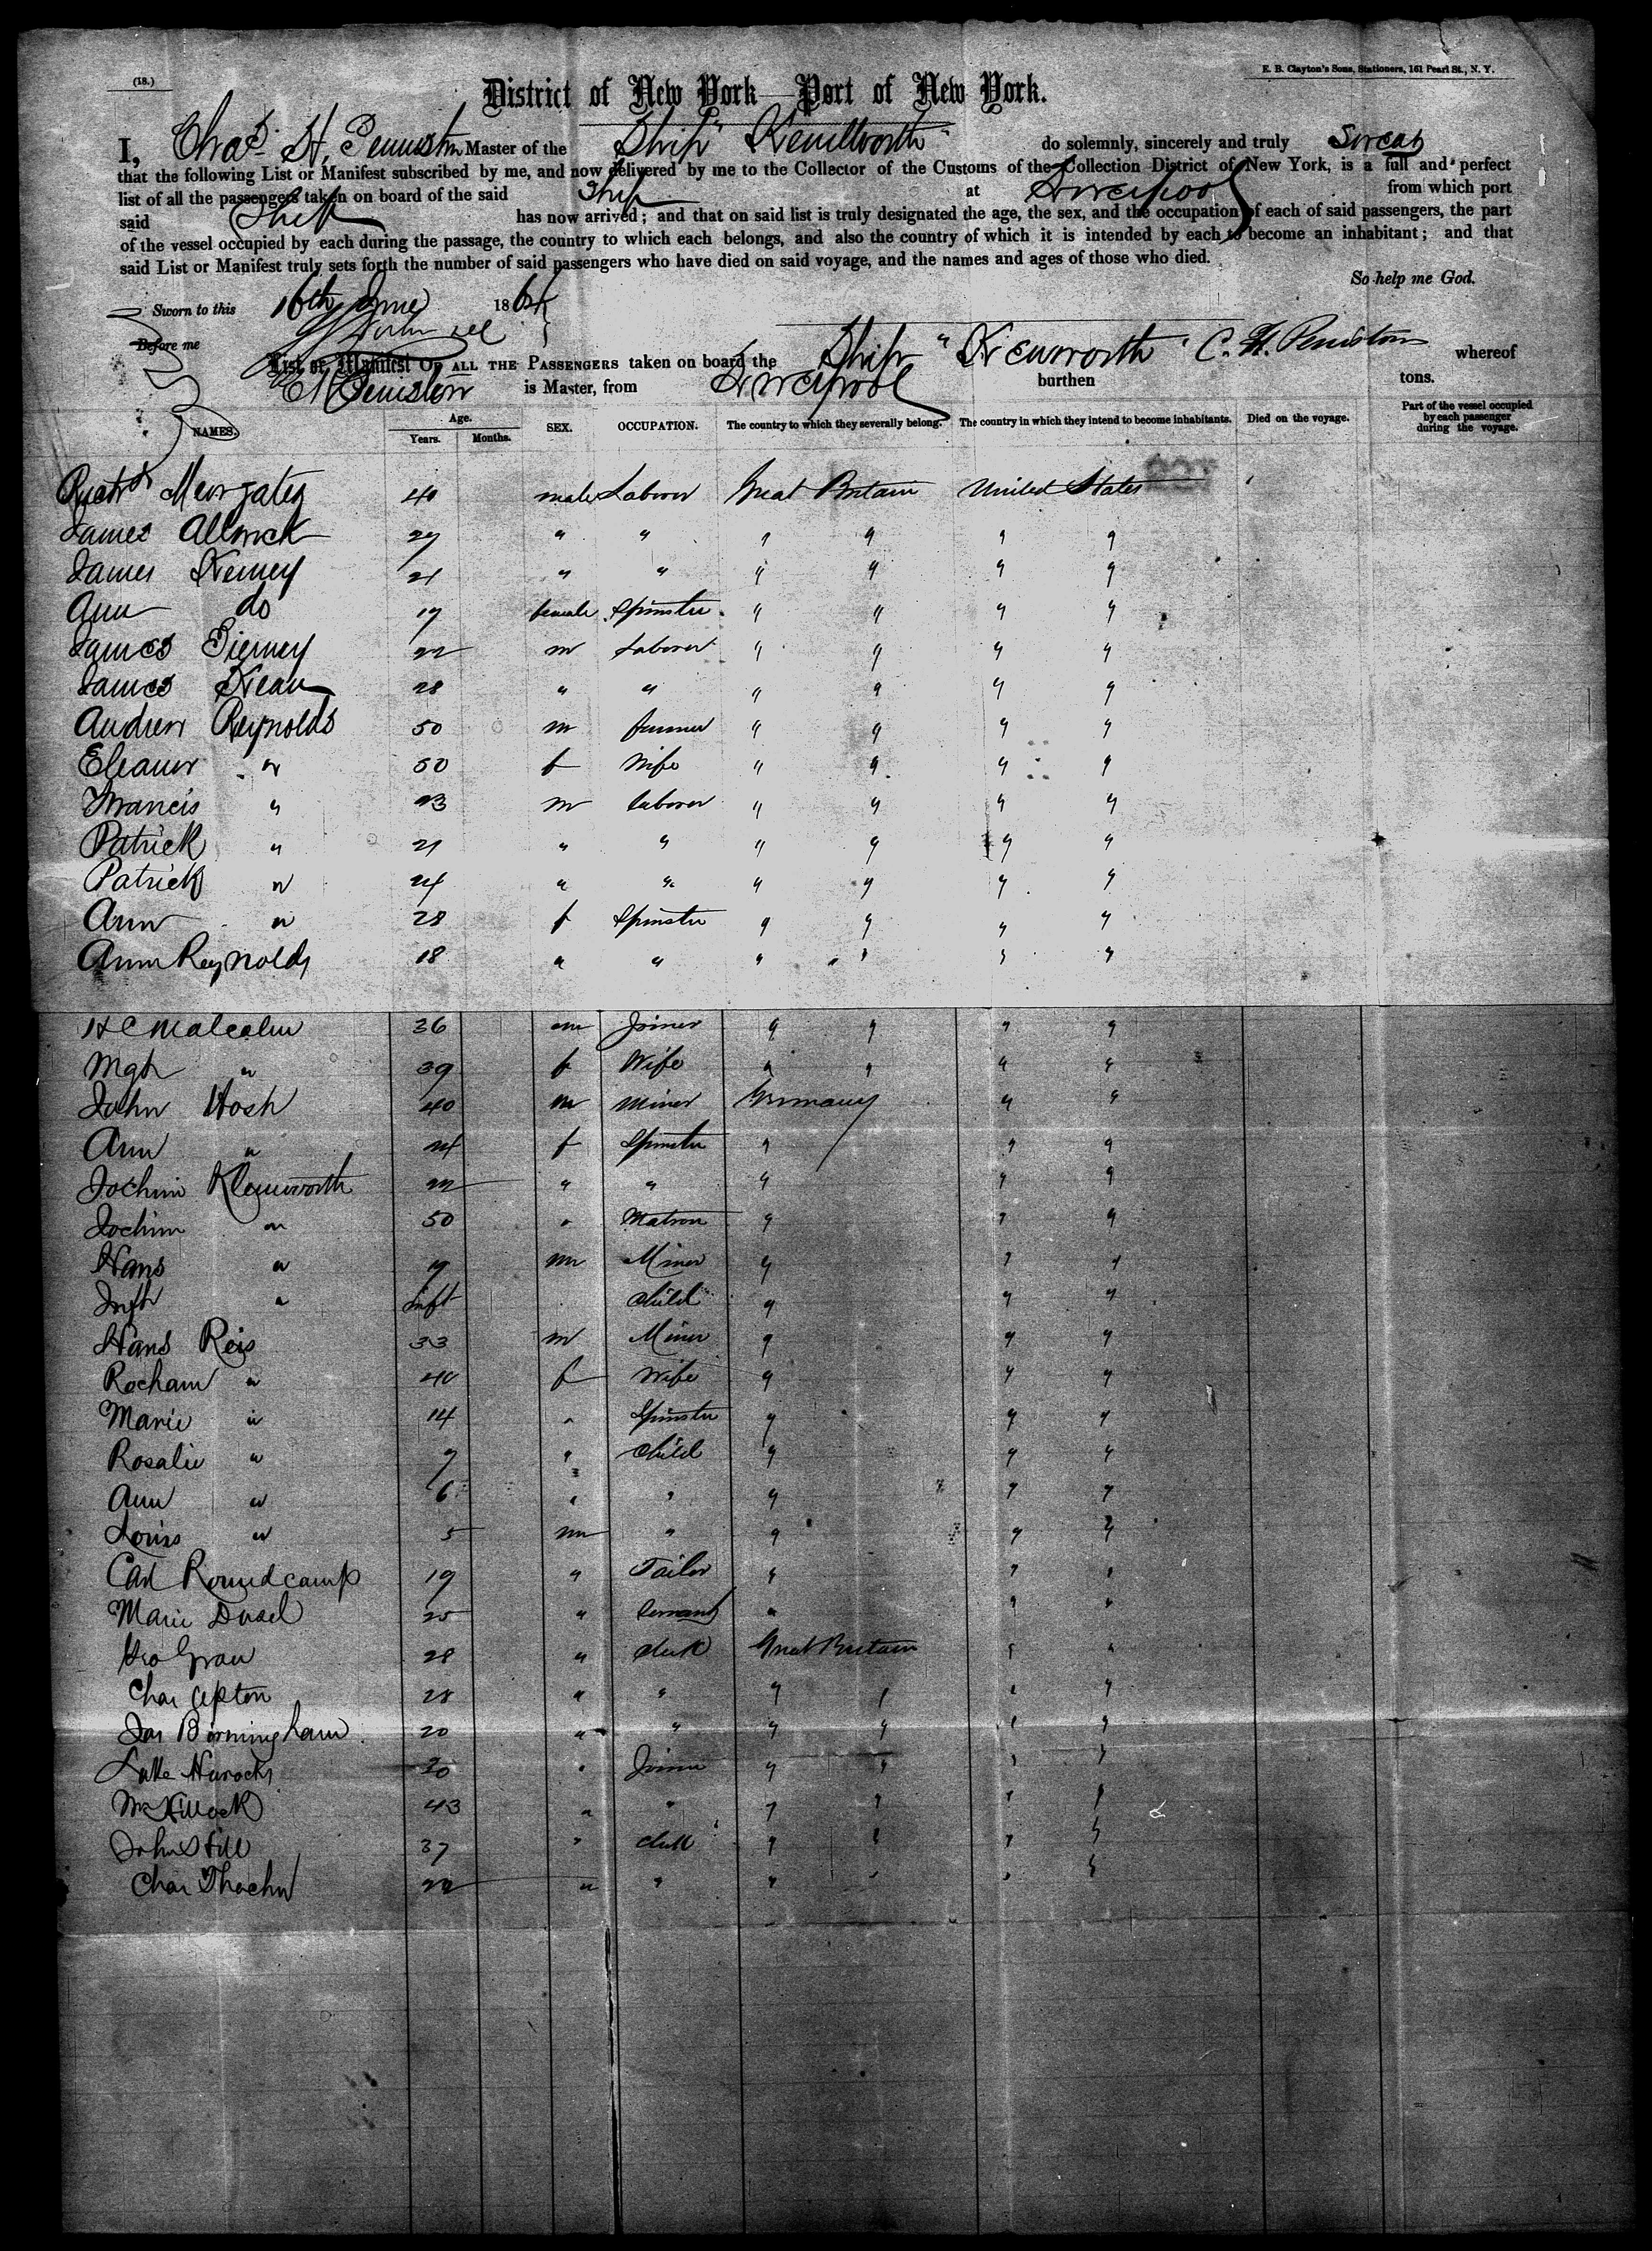 (18.)
E. B. Clayton's Sons, Stationers, 161 Pearl St., N. Y.
District of New York—Port of New York.
I, Chas. H. Peniston Master of the Ship "Kenilworth" do solemnly, sincerely and truly Swear
that the following List or Manifest subscribed by me, and now delivered by me to the Collector of the Customs of the Collection District of New York, is a full and perfect
list of all the passengers taken on board of the said Ship at Liverpool from which port
said Ship has now arrived; and that on said list is truly designated the age, the sex, and the occupation of each of said passengers, the part
of the vessel occupied by each during the passage, the country to which each belongs, and also the country of which it is intended by each to become an inhabitant; and that
said List or Manifest truly sets forth the number of said passengers who have died on said voyage, and the names and ages of those who died.
So help me God.
Sworn to this 16th June 1864
Before me
List or Manifest OF ALL THE PASSENGERS taken on board the Ship "Kenworth" C. H. Peniston whereof
C H Peniston is Master, from Liverpool burthen tons.
NAMES. Age. Years. Months. SEX. OCCUPATION. The country to which they severally belong. The country in which they intend to become inhabitants. Died on the voyage. Part of the vessel occupied by each passenger during the voyage.
40 male Laborer Great Britain United States
James 27 " " " " " "
James Kerney 21 " " " " " "
Ann do 19 female Spinster " " " "
James Tierney 22 m Laborer " " " "
James Kean 28 " " " " " "
Andrew Reynolds 50 m farmer " " " "
Eleanor " 50 f Wife " " " "
Francis " 23 m laborer " " " "
Patrick " 21 " " " " " "
Patrick " 24 " " " " " "
Ann " 28 f Spinster " " " "
Ann Reynolds 18 " " " " " "
H C Malcolm 36 m Joiner " " " "
Mgt " 39 f Wife " " " "
John Hosh 40 m Miner Germany " "
Ann " 24 f Spinster " " "
Jochim Klenworth 22 " " " " "
Jochim " 50 " Matron " " "
Hans " 9 m Miner " " "
Inft " Inft child " " "
Hans Reis 33 m Miner " " "
Rocham " 40 f Wife " " "
Marie " 14 " Spinster " " "
Rosalie " 7 " child " " "
Ann " 6 " " " " "
Louiss " 5 m " " " "
Carl Roundcamp 19 " Tailor " " "
Marie 25 " Servant " " "
Geo Grau 28 " clerk Great Britain " "
Chas Upton 28 " " " " " "
Jas Birmingham 20 " " " " " "
Luke 30 " Joiner " " " "
43 " " " " " "
John Hill 37 " clerk " " " "
Chas 22 " " " " " "